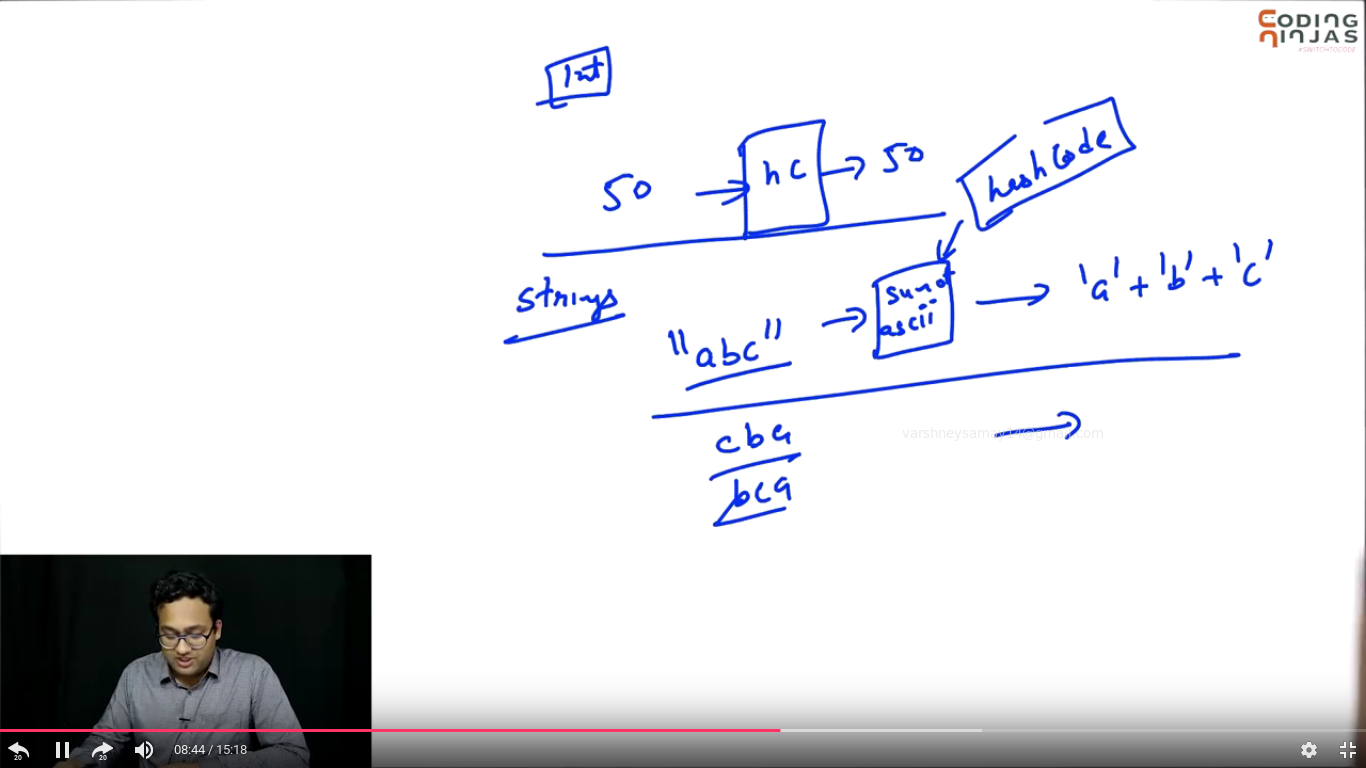 CODING
NINJAS
#SWITCHTOCODE
Int
50 → hc → 50
hashCode
strings
"abc" → sum of ascii → 'a' + 'b' + 'c'
cba →
bca
20
20
08:44 / 15:18